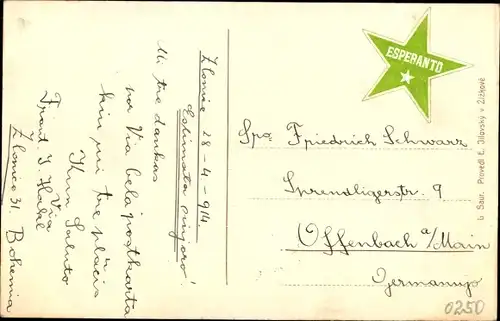 Zlonice 28-4-914.
Estimata sinjoro!
Mi tre dankas
na Via bela postkarta
kiu mi tre plaĉis
Kun Saluto
Via
Frant. J. Hackl
Zlonice 31. Bohemia
ESPERANTO
Spo Friedrich Schwarz
Sprendligerstr. 9
Offenbach a/Main
Germanujo
L. Saur. Provedl E. Jilovský v Žižkově
0250